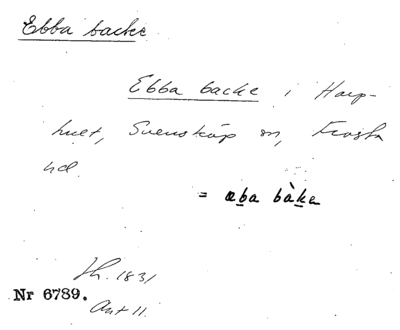 Ebba backe
Ebba backe i Harp-
huet, Svensköp sn, Frosta
hd.
= æba bàka
Jh. 1831
Nr 6789.
Ant 11.